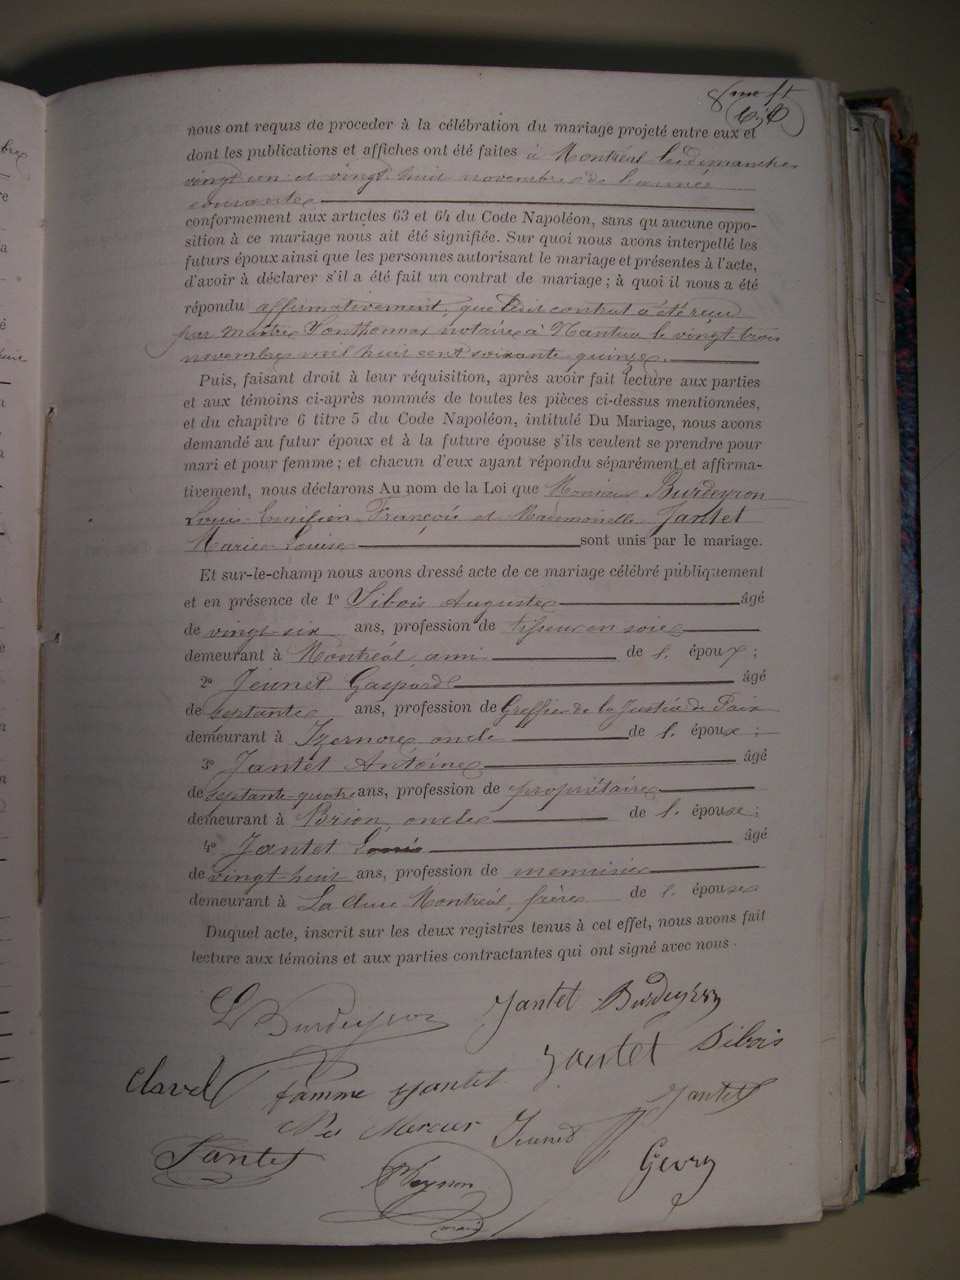 8me ft
nous ont requis de proceder à la célébration du mariage projeté entre eux et
dont les publications et affiches ont été faites à Montréal les dimanches
vingt un et vingt huit novembre de l'année
courante
conformement aux articles 63 et 64 du Code Napoléon, sans qu'aucune oppo-
sition à ce mariage nous ait été signifiée. Sur quoi nous avons interpellé les
futurs époux ainsi que les personnes autorisant le mariage et présentes à l'acte,
d'avoir à déclarer s'il a été fait un contrat de mariage ; à quoi il nous a été
répondu affirmativement, que leur contrat a été reçu
par maître Sonthonnax notaire à Nantua le vingt trois
novembre mil huit cent soixante quinze.
Puis, faisant droit à leur réquisition, après avoir fait lecture aux parties
et aux témoins ci-après nommés de toutes les pièces ci-dessus mentionnées,
et du chapitre 6 titre 5 du Code Napoléon, intitulé Du Mariage, nous avons
demandé au futur époux et à la future épouse s'ils veulent se prendre pour
mari et pour femme ; et chacun d'eux ayant répondu séparément et affirma-
tivement, nous déclarons Au nom de la Loi que Monsieur Burdeyron
Louis François et Mademoiselle Jantet
Marie Louise sont unis par le mariage.
Et sur-le-champ nous avons dressé acte de ce mariage célébré publiquement
et en présence de 1º Sibois Auguste âgé
de vingt-six ans, profession de tisseur en soie
demeurant à Montréal, ami de l. époux ;
2º Jeunet Gaspard âgé
de septante ans, profession de Greffier de la Justice de Paix
demeurant à Izernore, oncle de l. époux ;
3º Jantet Antoine âgé
de septante-quatre ans, profession de propriétaire
demeurant à Brion, oncle de l. épouse ;
4º Jantet Louis âgé
de vingt-huit ans, profession de menuisier
demeurant à La Cluse Montréal, frère de l. épouse
Duquel acte, inscrit sur les deux registres tenus à cet effet, nous avons fait
lecture aux témoins et aux parties contractantes qui ont signé avec nous.
L Burdeyron Jantet Burdeyron
Clavel femme Jantet Jantet Sibois
Née Mercier Jeunet Jantet
Jantet Gevry